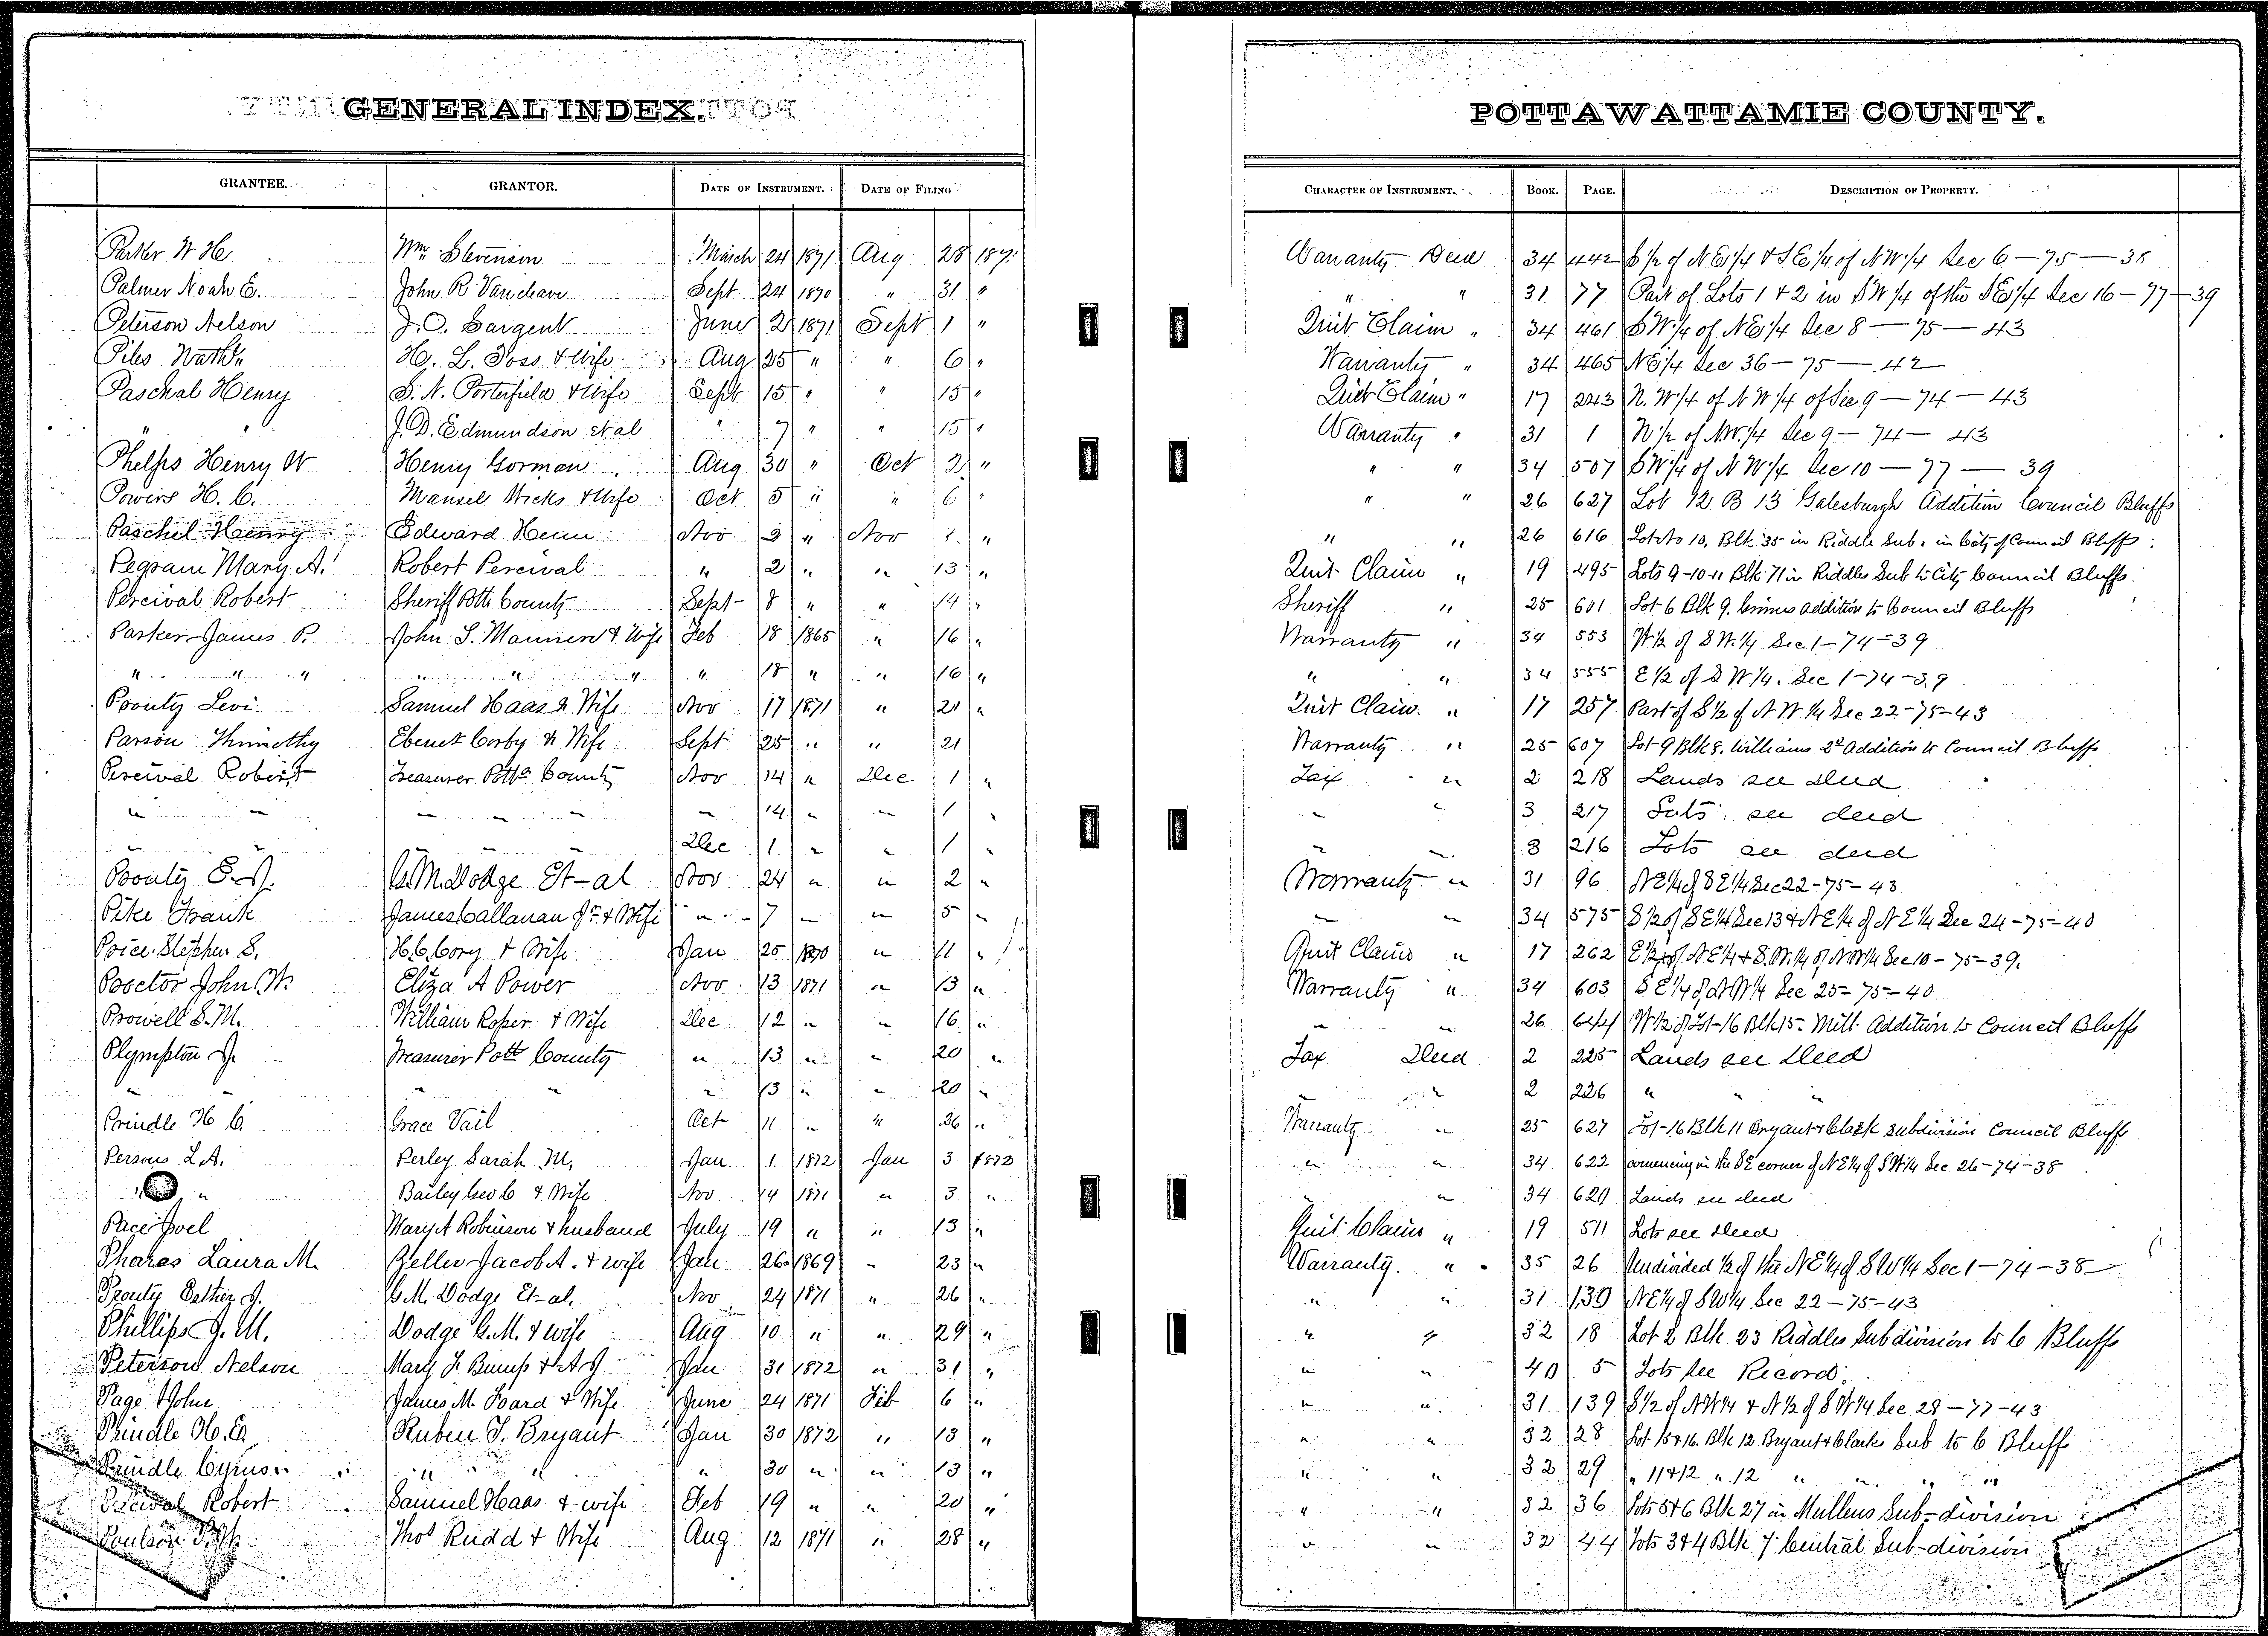 GENERAL INDEX.
POTTAWATTAMIE COUNTY.
GRANTEE. GRANTOR. DATE OF INSTRUMENT. DATE OF FILING CHARACTER OF INSTRUMENT. BOOK. PAGE. DESCRIPTION OF PROPERTY.
Parker W H Wm Stevenson March 24 1871 Aug 28 187 Warranty Deed 34 442 S 1/2 of N E 1/4 & S E 1/4 of N W 1/4 Sec 6 — 75 — 38
Palmer Noah E. John R Vancleave Sept 24 1870 " 31 " " " 31 77 Part of Lots 1 & 2 in S W 1/4 of the S E 1/4 Sec 16 — 77 — 39
Peterson Nelson J. O. Sargent June 21 1871 Sept 1 " Quit Claim " 34 461 S W 1/4 of N E 1/4 Sec 8 — 75 — 43
Piles Nathl. H. L. Foss & Wife Aug 25 " " 6 " Warranty " 34 465 N E 1/4 Sec 36 — 75 — 42
Paschal Henry S. N. Porterfield & Wife Sept 15 " " 15 " Quit Claim " 17 243 N. W 1/4 of N W 1/4 of Sec 9 — 74 — 43
" " J. D. Edmundson et al " 7 " " 15 " Warranty " 31 1 W 1/2 of NW 1/4 Sec 9 — 74 — 43
Phelps Henry W Henry Gorman Aug 30 " Oct 2 " " " 34 507 S W 1/4 of N W 1/4 Sec 10 — 77 — 39
Powers H. C. Mansel Wicks & Wife Oct 5 " " 6 " " " 26 627 Lot 12 B 13 Galesburgh Addition Council Bluffs
Paschel Henry Edward Henn Nov 3 " Nov 8 " " " 26 616 Lot No 10, Blk 35 in Riddle Sub. in City of Council Bluffs.
Pegram Mary A. Robert Percival " 2 " " 13 " Quit Claim " 19 495 Lots 9-10-11 Blk 71 in Riddles Sub to City Council Bluffs
Percival Robert Sheriff Potta County Sept 8 " " 14 " Sheriff " 25 601 Lot 6 Blk 9. Grimes addition to Council Bluffs
Parker James P. John S. Manners & Wife Feb 18 1865 " 16 " Warranty " 34 553 W 1/2 of S W. 1/4 Sec 1-74-39
" " " " " " 18 " " 16 " " " 34 555 E 1/2 of S W 1/4. Sec 1-74-39
Prouty Levi Samuel Haas & Wife Nov 17 1871 " 21 " Quit Claim. " 17 257 Part of S 1/2 of N W. 1/4 Sec 22-75-43
Parson Thimothy Ebenet Corby & Wife Sept 25 " " 21 Warranty " 25 607 Lot 9 Blk 8. Williams 2d Addition to Council Bluffs
Percival Robert Treasurer Potta County Nov 14 " Dec 1 " Tax " 2 218 Lands see Deed
" " " " " " 14 " " 1 " " " 3 217 Lots see deed
" " " " " Dec 1 " " 1 " " " 3 216 Lots see deed
Prouty E. J. G. M. Dodge Et-al Nov 24 " " 2 " Warranty " 31 96 N E 1/4 of S E 1/4 Sec 22-75-43
Pike Frank James Callanan Jr & Wife " 7 " " 5 " " " 34 575 S 1/2 of S E 1/4 Sec 13 & N E 1/4 of N E 1/4 Sec 24-75-40
Price Stephen S. H. C. Cory & Wife Jan 25 1870 " 11 " Quit Claim " 17 262 E 1/2 of N E 1/4 & S. W. 1/4 of N W 1/4 Sec 10-75-39.
Proctor John W. Eliza A Power Nov 13 1871 " 13 " Warranty " 34 603 S E 1/4 of N W 1/4 Sec 25-75-40
Prowell S. M. William Roper & Wife Dec 12 " " 16 " " " 26 644 W 1/2 of Lot 16 Blk 15. Mill Addition to Council Bluffs
Plympton J. Treasurer Pott County " 13 " " 20 " Tax Deed 2 225 Lands see Deed
" " " " " 13 " " 20 " " 2 226 " " "
Prindle H. C. Grace Vail Oct 11 " " 26 " Warranty " 25 627 Lot-16 Blk 11 Bryant & Clark subdivision Council Bluffs.
Persons L. A. Perley Sarah M. Jan 1 1872 Jan 3 1872 " " 34 622 comencing in the S E corner of N E 1/4 of S W 1/4 Sec. 26-74-38
" " Bailey Geo C & Wife Nov 14 1871 " 3 " " " 34 621 Lands see deed
Pace Joel Mary A Robinson & husband July 19 " " 13 " Quit Claim " 19 511 Lots see Deed
Phares Laura M. Zeller Jacob A. & wife Jan 26 1869 " 23 " Warranty. " 35 26 Undivided 1/2 of the N E 1/4 of S W 1/4 Sec 1-74-38
Prouty Esther J. G. M. Dodge Et-al. Nov 24 1871 " 26 " " " 31 139 N E 1/4 of S W 1/4 Sec 22-75-43
Phillips J. M. Dodge G. M. & wife Aug 10 " " 29 " " " 32 18 Lot 2 Blk 23 Riddles Subdivision to C Bluffs
Peterson Nelson Mary J. Bump & A J Jan 31 1872 " 31 " " " 40 5 Lots see Record.
Page John James M. Foard & Wife June 24 1871 Feb 6 " " " 31 139 S 1/2 of N W 1/4 & N 1/2 of S W 1/4 Sec 28-77-43
Prindle H. C. Ruben T. Bryant Jan 30 1872 " 13 " " " 32 28 Lot 15 & 16. Blk 12 Bryant & Clarks Sub to C Bluffs
Prindle Cyrus " " " " 30 " " 13 " " " 32 29 " 11 & 12 " 12 " " " "
Percival Robert Samuel Haas & wife Feb 19 " " 20 " " " 32 36 Lots 5 & 6 Blk 27 in Mullens Sub-division
Poulson Thos Rudd & Wife Aug 12 1871 " 28 " " " 32 44 Lots 3 & 4 Blk 7 Central Sub-division